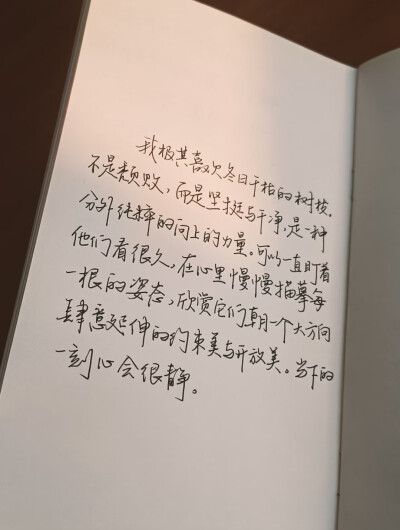 我极其喜欢冬日干枯的树枝。
不是颓败，而是坚挺与干净，是一种
分外纯粹的向上的力量。可以一直盯着
他们看很久，在心里慢慢描摹每
一根的姿态，欣赏它们朝一个大方向
肆意延伸的约束美与开放美。当下的
一刻心会很静。